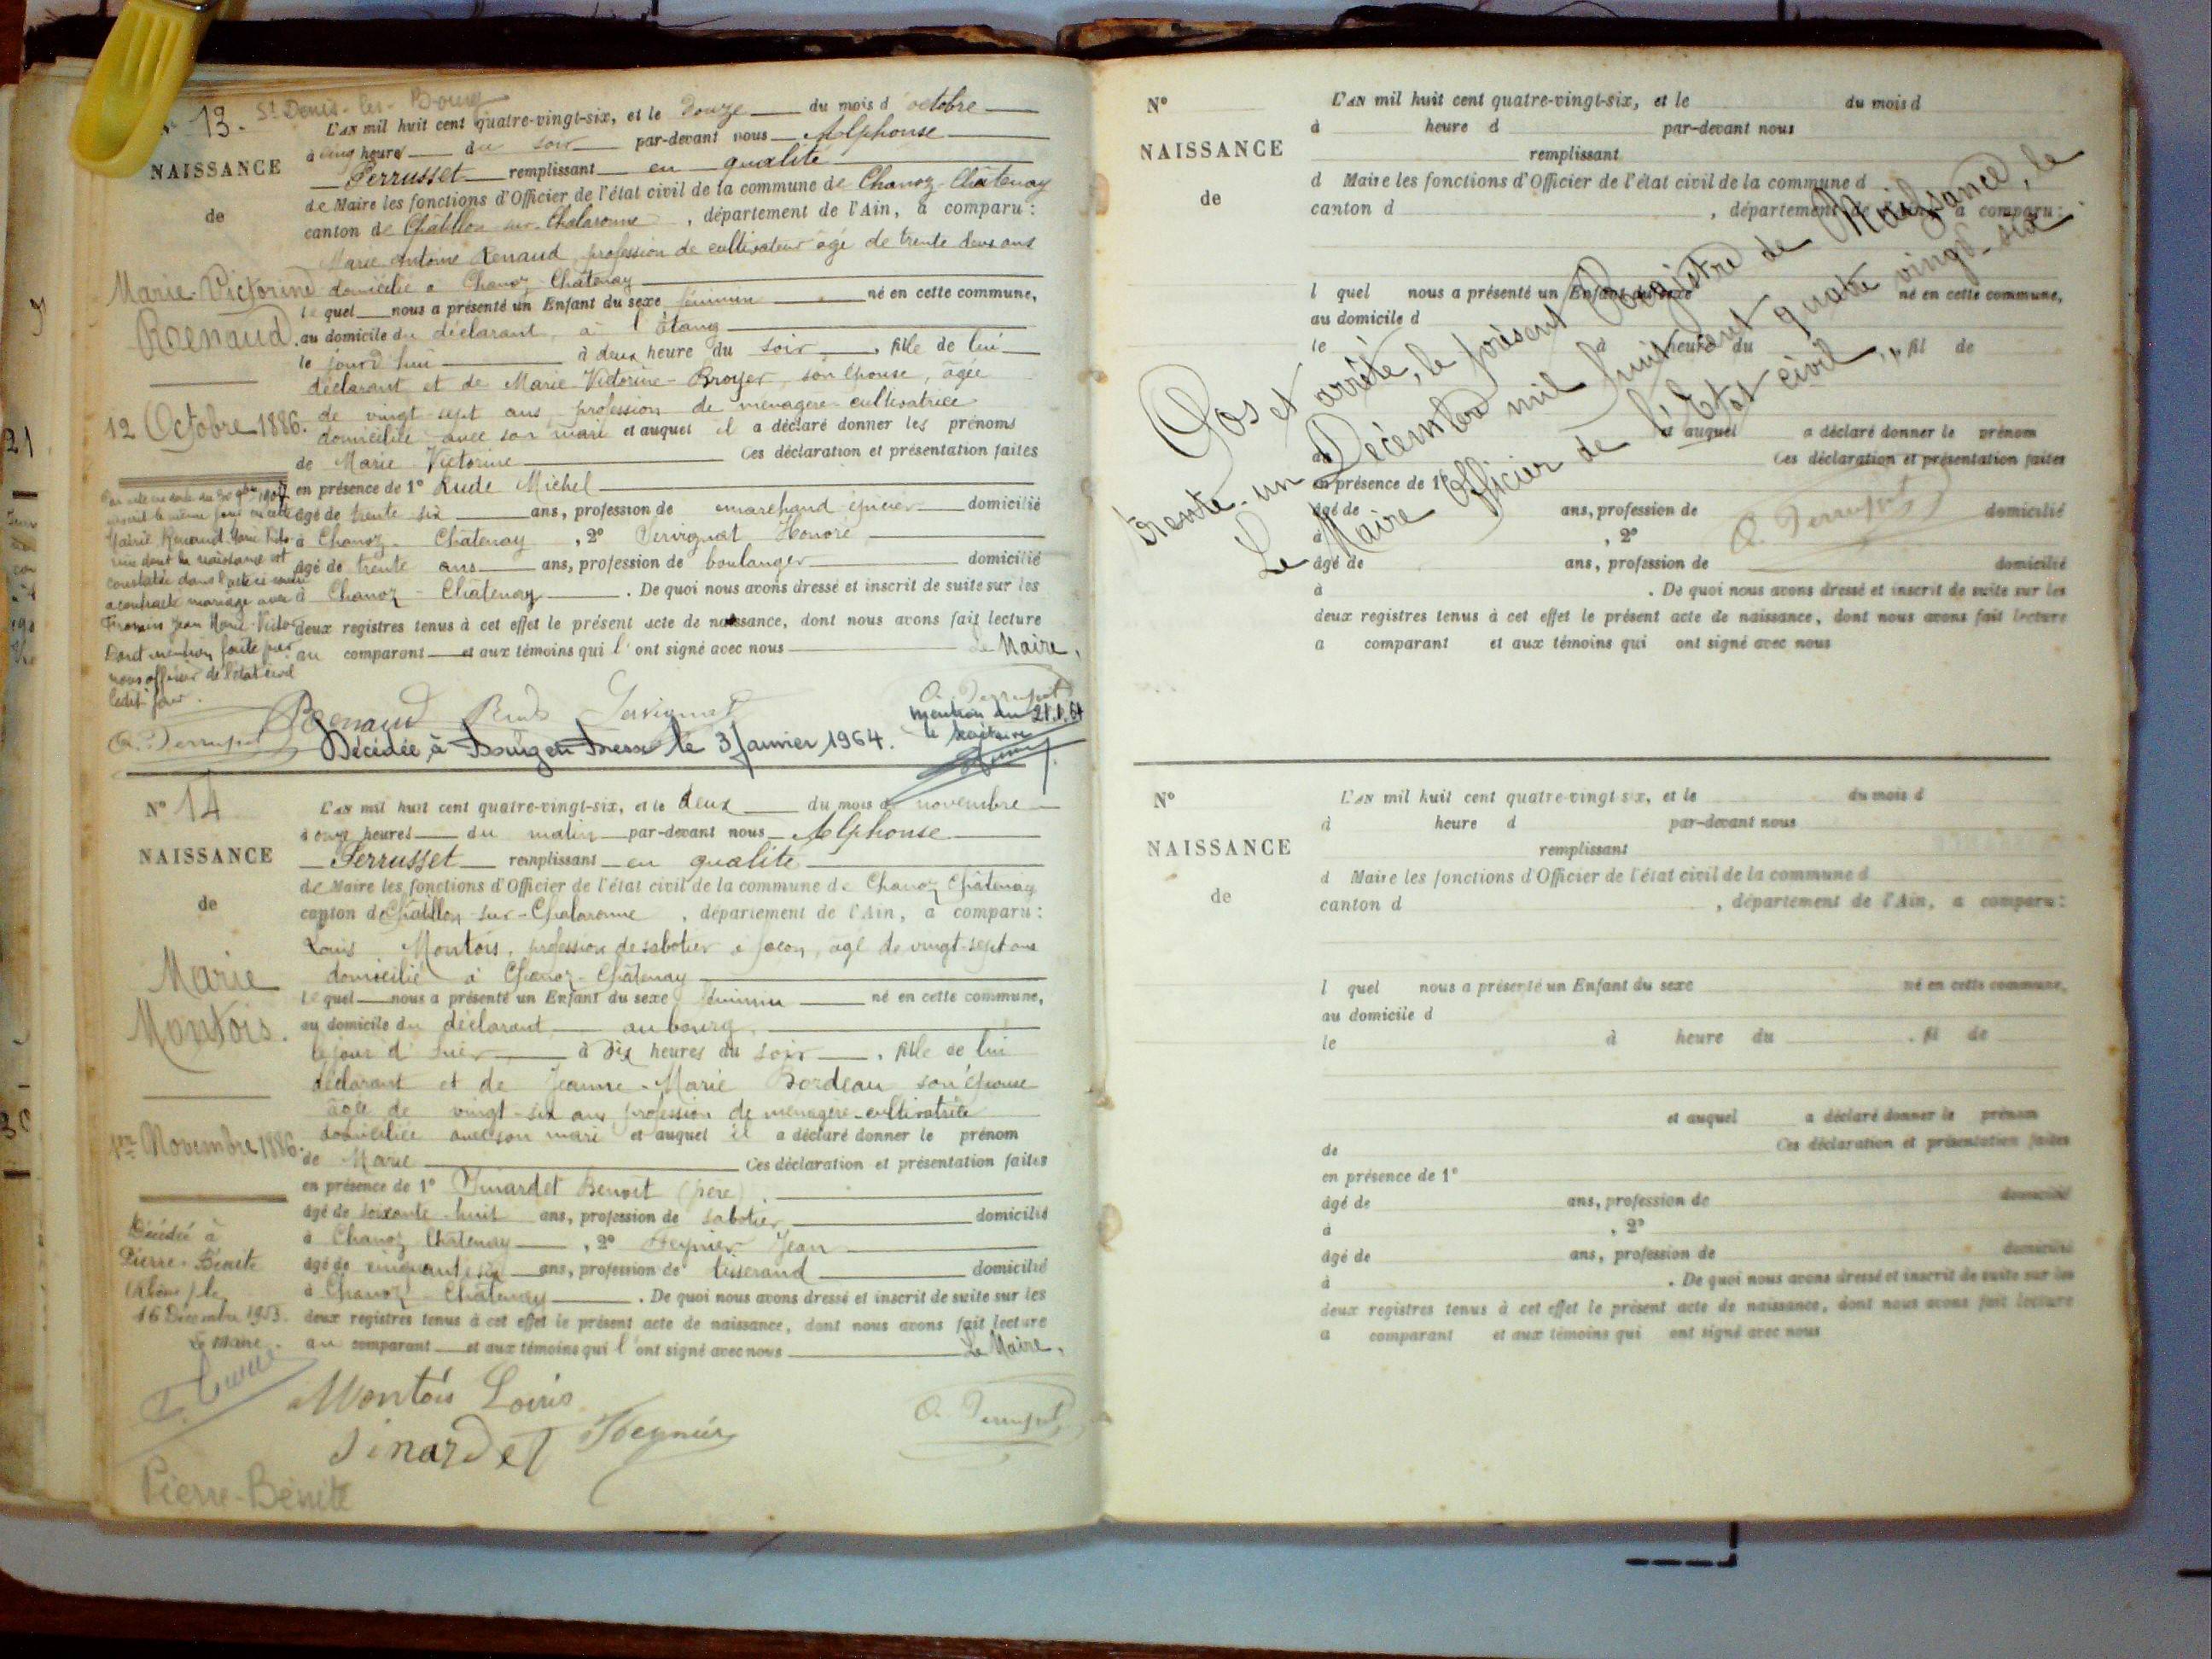 St Denis-les-Bourg
N° 13.
NAISSANCE
de
Marie-Victorine
Renaud
12 Octobre 1886.
L'AN mil huit cent quatre-vingt-six, et le douze du mois d octobre
à cinq heures du soir par-devant nous Alphonse
Perrusset remplissant en qualité
de Maire les fonctions d'Officier de l'état civil de la commune de Chanoz-Châtenay
canton de Châtillon sur Chalaronne, département de l'Ain, a comparu :
Marie Antoine Renaud, profession de cultivateur âgé de trente deux ans
domicilié à Chanoz-Châtenay
lequel nous a présenté un Enfant du sexe féminin né en cette commune,
au domicile du déclarant, à l'Étang
le jourd'hui à deux heure du soir, fille de lui
déclarant et de Marie Victorine Broyer, son épouse, âgée
de vingt sept ans profession de ménagère cultivatrice
domiciliée avec son mari et auquel il a déclaré donner les prénoms
de Marie Victorine Ces déclaration et présentation faites
en présence de 1° Rude Michel
âgé de trente six ans, profession de marchand épicier domicilié
à Chanoz-Châtenay, 2° Servignat Honoré
âgé de trente ans ans, profession de boulanger domicilié
à Chanoz-Châtenay. De quoi nous avons dressé et inscrit de suite sur les
deux registres tenus à cet effet le présent acte de naissance, dont nous avons fait lecture
au comparant et aux témoins qui l'ont signé avec nous Le Maire,
inscrit le même jour en cette
Mairie Renaud Marie Victo-
rine dont la naissance est
constatée dans l'acte ci contre
a contracté mariage avec
Jean Marie Victor
mention faite par
nous officier de l'état civil
ledit jour.
Renaud Rude Servignat
A. Perrusset
A. Perrusset
Décédée à Bourg en Bresse le 3 Janvier 1964.
mention du 21.1.64
le secrétaire
N° 14
NAISSANCE
de
Marie
Montois.
1er Novembre 1886.
L'AN mil huit cent quatre-vingt-six, et le deux du mois de novembre
à onze heures du matin par-devant nous Alphonse
Perrusset remplissant en qualité
de Maire les fonctions d'Officier de l'état civil de la commune de Chanoz Châtenay
canton de Châtillon sur-Chalaronne, département de l'Ain, a comparu :
Louis Montois, profession de sabotier à façon, âgé de vingt-sept ans
domicilié à Chanoz-Châtenay
lequel nous a présenté un Enfant du sexe féminin né en cette commune,
au domicile du déclarant, au bourg,
le jour d'hier à dix heures du soir, fille de lui
déclarant et de Jeanne-Marie Bordeau son épouse
âgée de vingt-six ans profession de ménagère-cultivatrice
domiciliée avec son mari et auquel il a déclaré donner le prénom
de Marie Ces déclaration et présentation faites
en présence de 1° Sinardet Benoit (père).
âgé de soixante-huit ans, profession de sabotier, domicilié
à Chanoz Châtenay, 2° Jean
âgé de cinquante six ans, profession de tisserand domicilié
à Chanoz-Châtenay. De quoi nous avons dressé et inscrit de suite sur les
deux registres tenus à cet effet le présent acte de naissance, dont nous avons fait lecture
au comparant et aux témoins qui l'ont signé avec nous Le Maire,
Décédé à
Pierre-Bénite
(Rhône) le
16 Décembre 1953.
Le Maire.
Montois Louis
Sinardet
A. Perrusset
Pierre-Bénite
N°
NAISSANCE
de
L'AN mil huit cent quatre-vingt-six, et le du mois d
à heure d par-devant nous
remplissant
d Maire les fonctions d'Officier de l'état civil de la commune d
canton d , département de l'Ain, a comparu :
l quel nous a présenté un Enfant du sexe né en cette commune,
au domicile d
le à heure du , fil de
et auquel a déclaré donner le prénom
de Ces déclaration et présentation faites
en présence de 1°
âgé de ans, profession de domicilié
à , 2°
âgé de ans, profession de domicilié
à . De quoi nous avons dressé et inscrit de suite sur les
deux registres tenus à cet effet le présent acte de naissance, dont nous avons fait lecture
a comparant et aux témoins qui ont signé avec nous
Clos et arrêté, le présent Registre de Naissance, le
trente-un Décembre mil huit cent quatre vingt-six
Le Maire Officier de l'État civil,,
A. Perrusset
N°
NAISSANCE
de
L'AN mil huit cent quatre-vingt-six, et le du mois d
à heure d par-devant nous
remplissant
d Maire les fonctions d'Officier de l'état civil de la commune d
canton d , département de l'Ain, a comparu :
l quel nous a présenté un Enfant du sexe né en cette commune,
au domicile d
le à heure du , fil de
et auquel a déclaré donner le prénom
de Ces déclaration et présentation faites
en présence de 1°
âgé de ans, profession de domicilié
à , 2°
âgé de ans, profession de domicilié
à . De quoi nous avons dressé et inscrit de suite sur les
deux registres tenus à cet effet le présent acte de naissance, dont nous avons fait lecture
a comparant et aux témoins qui ont signé avec nous